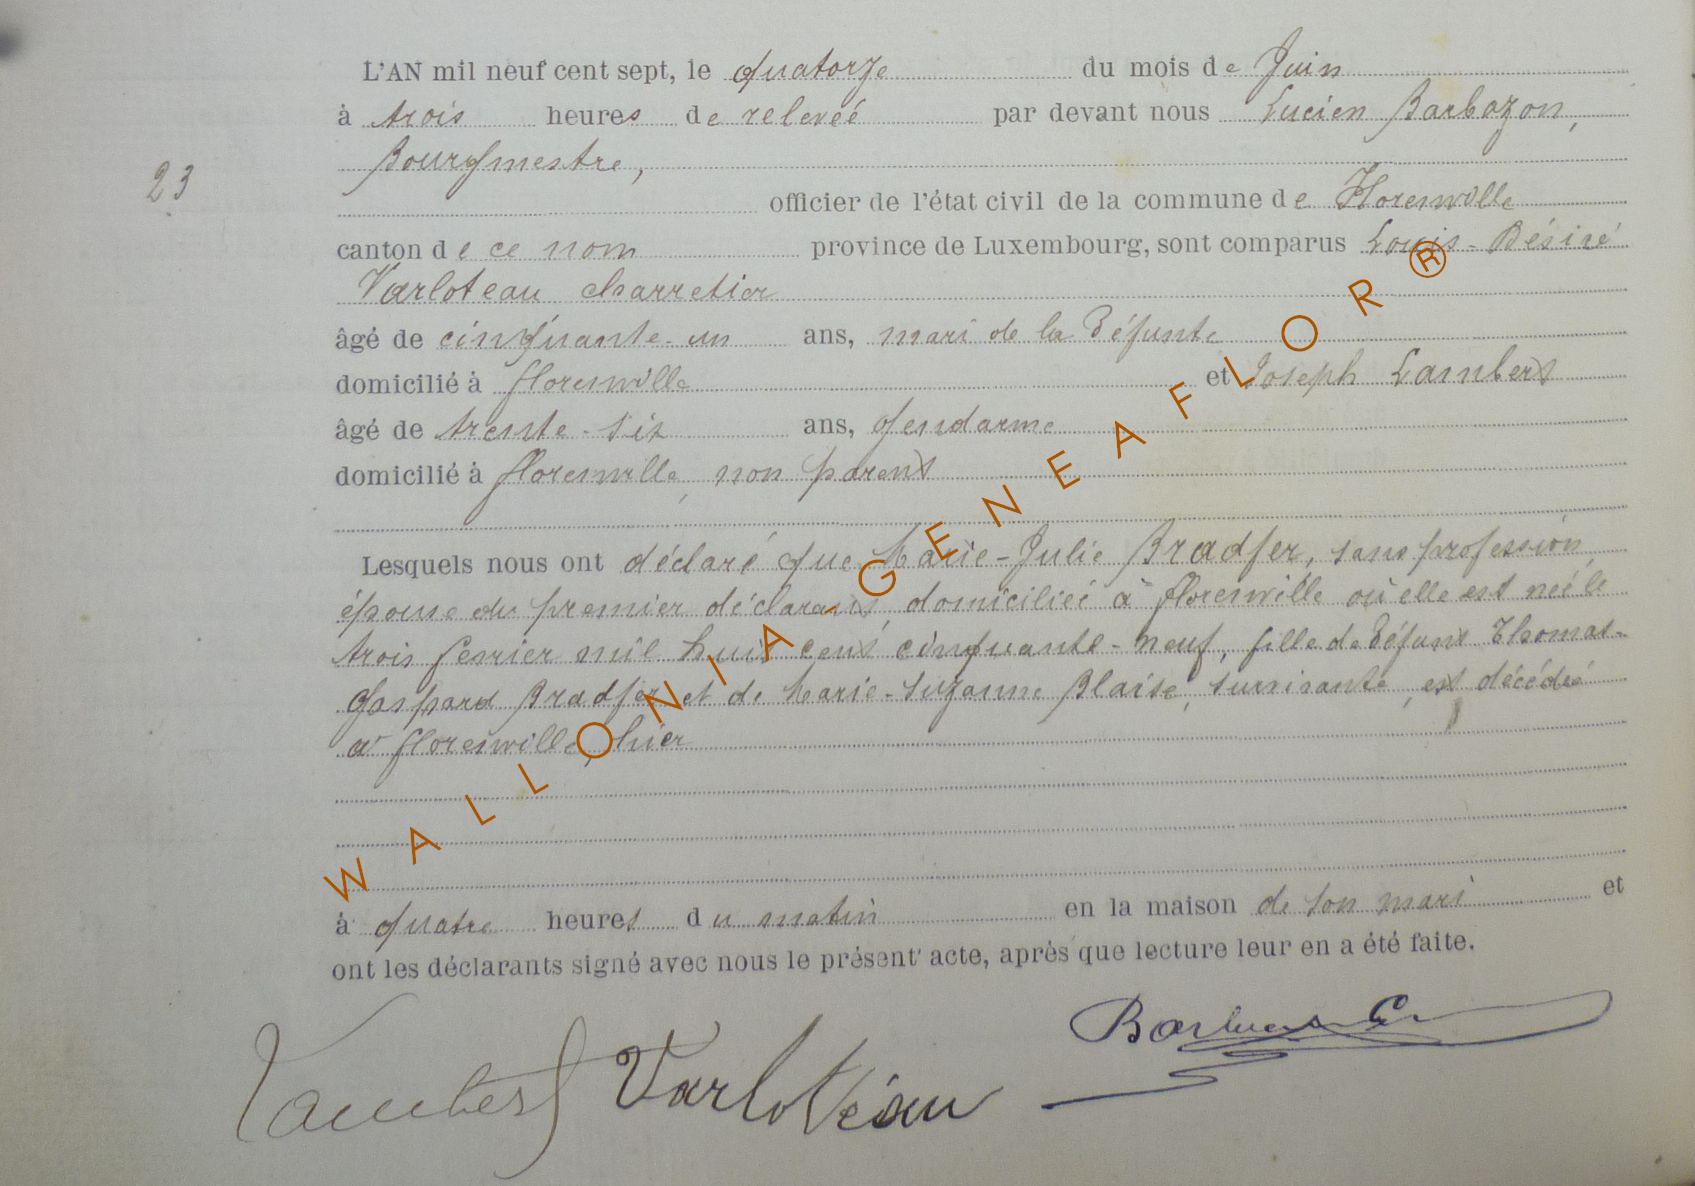 L'AN mil neuf cent sept, le quatorze du mois de Juin
à trois heures de relevéé par devant nous Lucien Barbozon,
Bourgmestre,
23
officier de l'état civil de la commune de Florenville
canton de ce nom province de Luxembourg, sont comparus Louis-Désiré
Varloteau charretier
âgé de cinquante-un ans, mari de la défunte
domicilié à florenville et Joseph Lambert
âgé de trente-six ans, gendarme
domicilié à florenville, non parent
Lesquels nous ont déclaré que Marie-Julie Bradfer, sans profession,
épouse du premier déclarant, domiciliéé à florenville où elle est néé le
trois fevrier mil huit cent cinquante-neuf, fille de défunt Thomas-
Gaspard Bradfer et de Marie-Suzanne Blaise, survivante, est décédéé
à florenville, hier
à quatre heures du matin en la maison de son mari et
ont les déclarants signé avec nous le présent acte, après que lecture leur en a été faite.
Lambert Varlotéau
WALLONIA-GENEAFLOR®